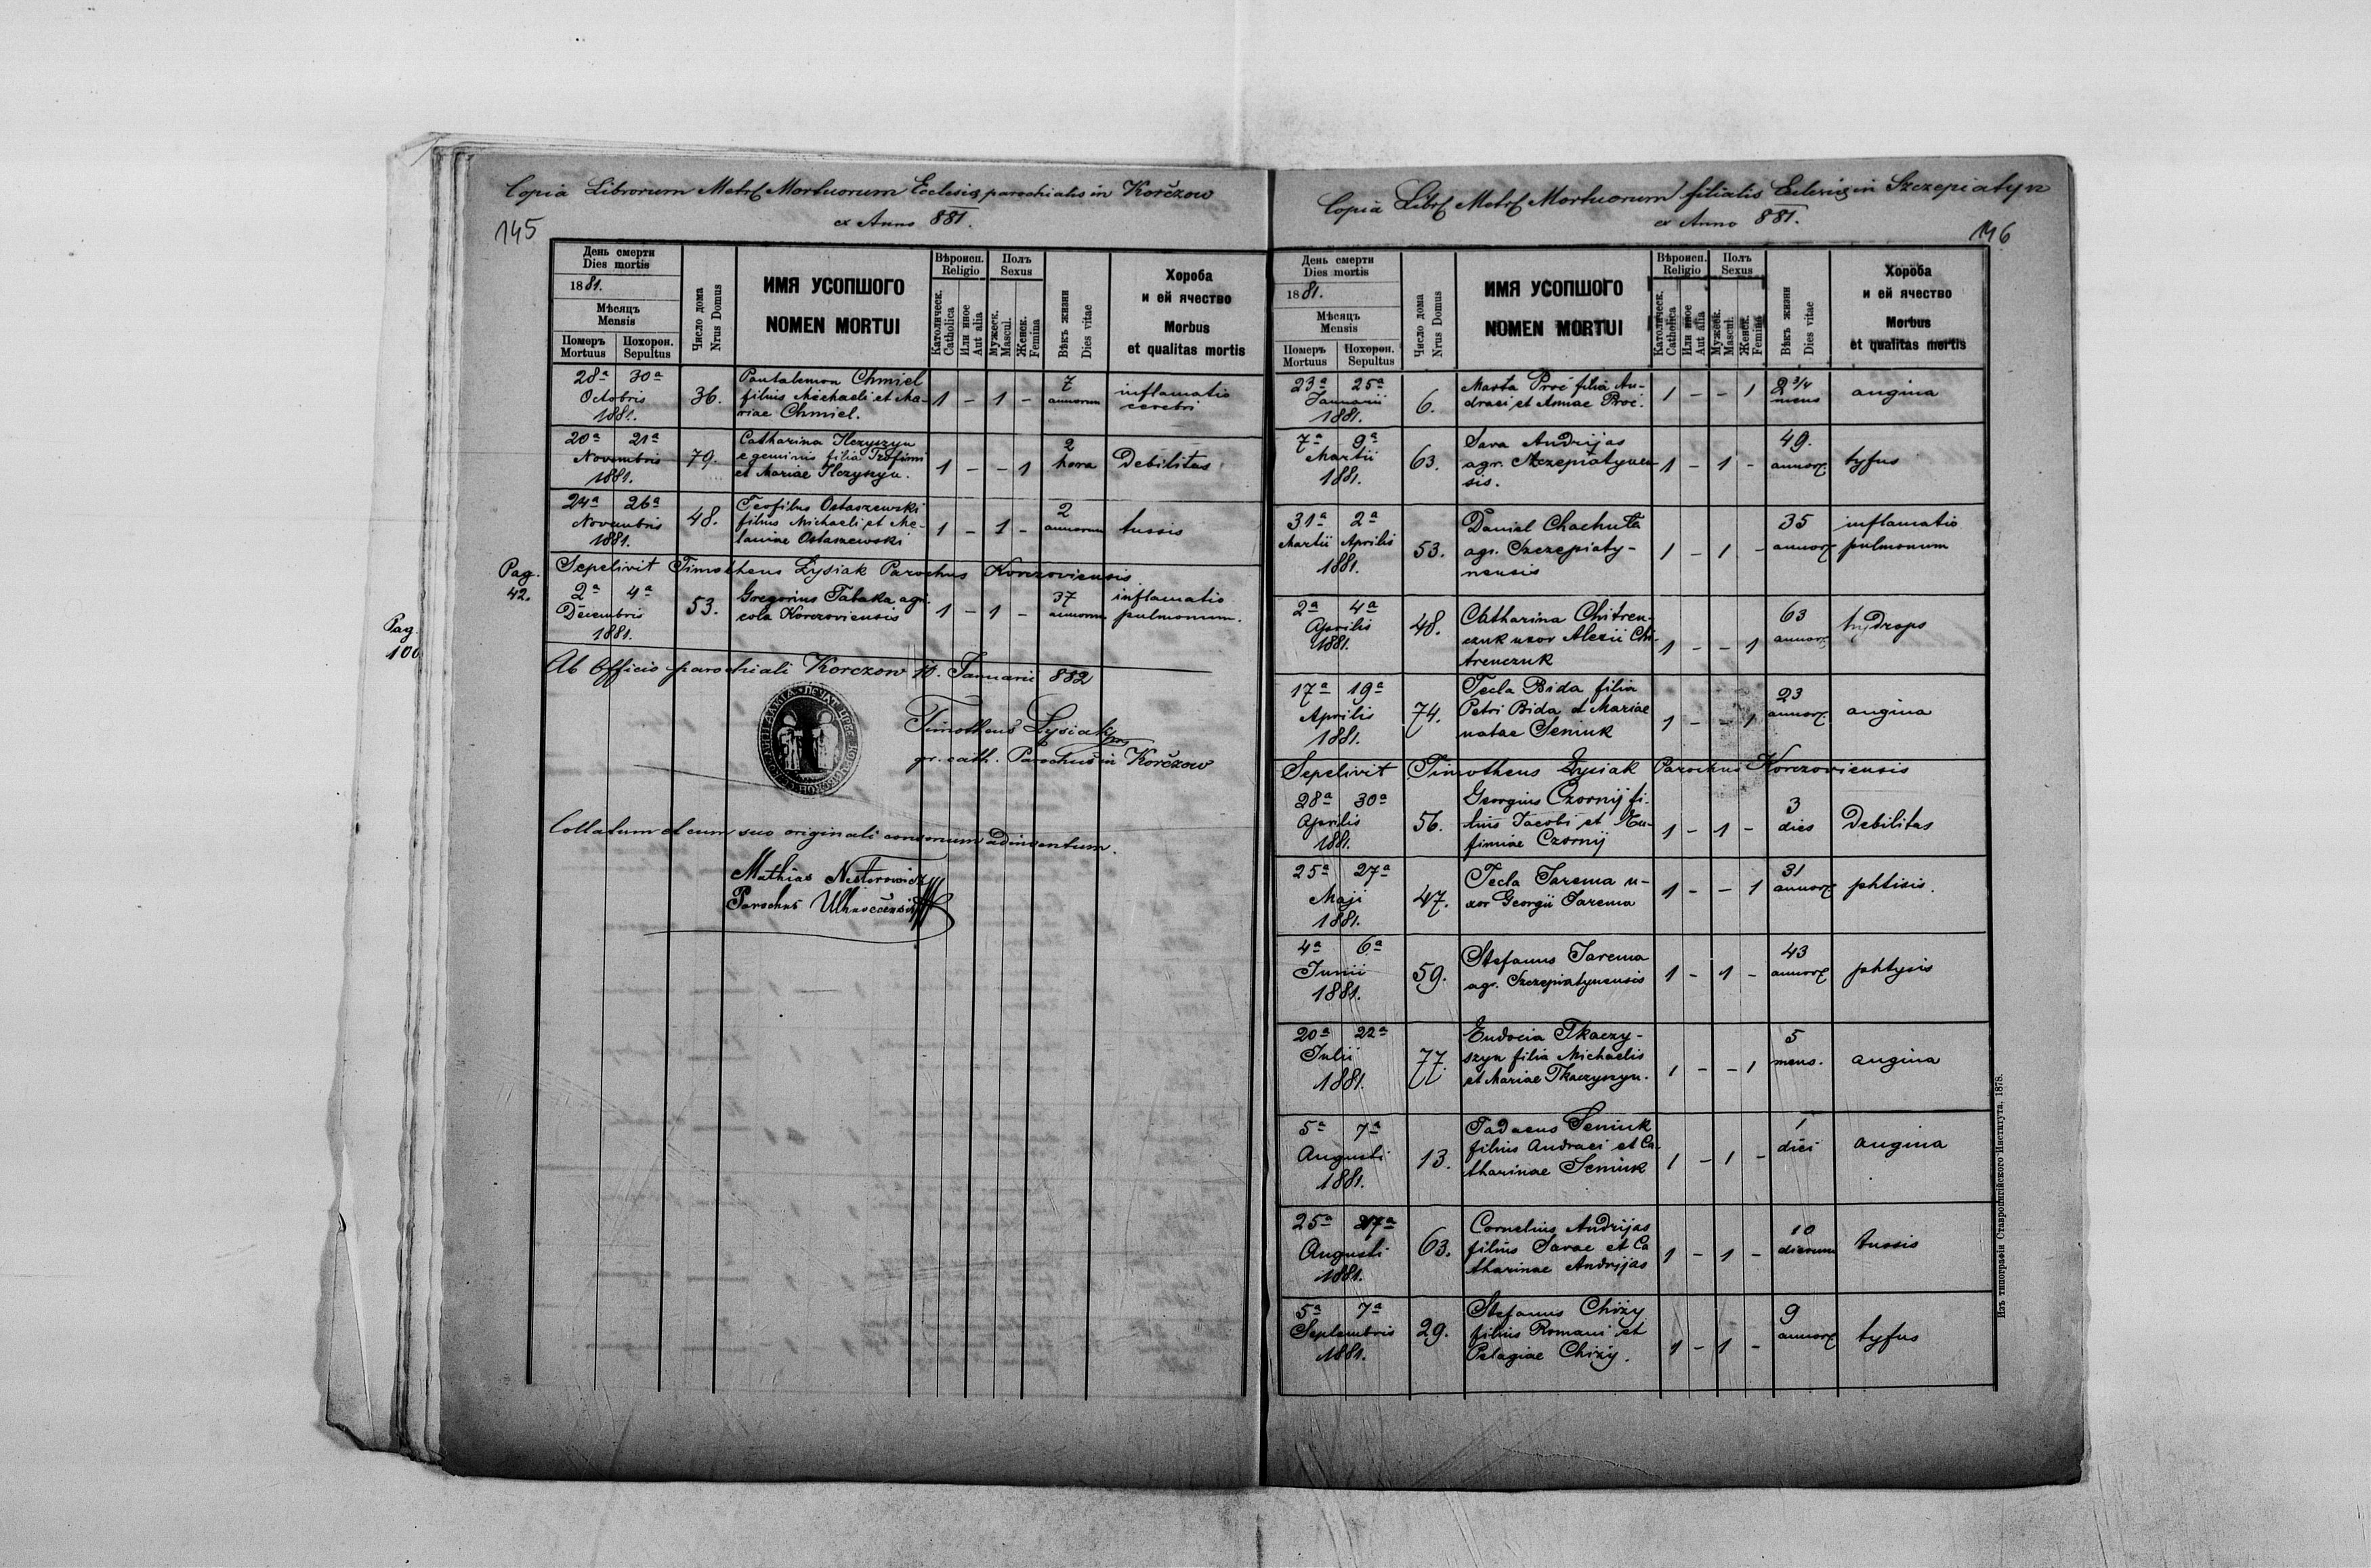 Copia Librorum Metr. Mortuorum Ecclesiæ parochialis in Korčzow
ex Anno 881.
145
День смерти
Dies mortis
1881.
Мѣсяцъ
Mensis
Померъ
Mortuus
Похорон.
Sepultus
Число дома
Nrus Domus
ИМЯ УСОПШОГО
NOMEN MORTUI
Вѣроисп.
Religio
Католическ.
Catholica
Или иное
Aut alia
Полъ
Sexus
Мужеск.
Mascul.
Женск.
Femina
Вѣкъ жизни
Dies vitae
Хороба
и ей ячество
Morbus
et qualitas mortis
28ª 30ª Pantalemon Chmiel 7 inflamatio
Octobris 36. filius Michaeli et Ma- 1 - 1 - annorum cerebri
1881. riae Chmiel.
20ª 21ª Catharina Ilczyszyn 2
Novembris 79. e geminis filia Trofimi 1 - - 1 hora Debilitas
1881. et Mariae Ilczyszyn.
24ª 26ª Teofilus Ostaszewski 2
Novembris 48. filius Michaeli et Me- 1 - 1 - annorum tussis
1881. laniae Ostaszewski
Pag. 42.
Sepelivit Timotheus Łysiak Parochus Korczoviensis
2ª 4ª Gregorius Tabaka agri- 37 inflamatio
Decembris 53. cola Korczoviensis 1 - 1 - annorum pulmonum.
1881.
Pag.
100
Ab Officio parochiali Korczow 10. Januarii 882
Timotheus Łysiak
gr. cath. Parochus in Korčzow
Collatum et cum suo originali consonum adinventum.
Mathias Nestorowicz
Parochus
Copia Libr. Metr. Mortuorum filialis Ecclesiæ in Szczepiatyn
ex Anno 881.
146
День смерти
Dies mortis
1881.
Мѣсяцъ
Mensis
Померъ
Mortuus
Похорон.
Sepultus
Число дома
Nrus Domus
ИМЯ УСОПШОГО
NOMEN MORTUI
Вѣроисп.
Religio
Католическ.
Catholica
Или иное
Aut alia
Полъ
Sexus
Мужеск.
Mascul.
Женск.
Femina
Вѣкъ жизни
Dies vitae
Хороба
и ей ячество
Morbus
et qualitas mortis
23ª 25ª Marta Proć filia An- 2 3/4 angina
Januarii 6. draei et Annae Proć. 1 - - 1 mens
1881.
7ª 9ª Sava Andrijas 49.
Martii 63. agr. Szczepiatynen- 1 - 1 - annor. tyfus
1881. sis.
31ª 2ª Daniel Chachuła 35 inflamatio
Martii Aprilis 53. agr. Szczepiaty- 1 - 1 - annor. pulmonum
1881. nensis
2ª 4ª Catharina Chitren- 63 hydrops
Aprilis 48. czuk uxor Alexii Chi- 1 - - 1 annor.
1881. trenczuk
17ª 19ª Tecla Bida filia 23
Aprilis 74. Petri Bida et Mariae 1 - - 1 annor. angina
1881. natae Seniuk
Sepelivit Timotheus Łysiak Parochus Korczoviensis
28ª 30ª Georgius Czornij fi- 3
Aprilis 56. lius Jacobi et Eu- 1 - 1 - dies Debilitas
1881. fimiae Czornij
25ª 27ª Tecla Jarema u- 31
Maji 47. xor Georgii Jarema 1 - - 1 annor. phtisis.
1881.
4ª 6ª Stefanus Jarema 43
Junii 59. agr. Szczepiatynensis 1 - 1 - annor. phtysis
1881.
20ª 22ª Eudocia Tkaczy- 5
Julii 77. szyn filia Michaelis 1 - - 1 mens. angina
1881. et Mariae Tkaczyszyn.
5ª 7ª Tadaeus Seniuk 1
Augusti 13. filius Andraei et Ca- 1 - 1 - diei angina
1881. tharinae Seniuk
25ª 27ª Cornelius Andrijas 10
Augusti 63. filius Savae et Ca 1 - 1 - dierum tussis
1881. tharinae Andrijas
5ª 7ª Stefanus Chiży 9
Septembris 29. filius Romani et 1 - 1 - annor. tyfus
1881. Pelagiae Chiży.
Изъ типографіи Ставропигійского Института, 1878.